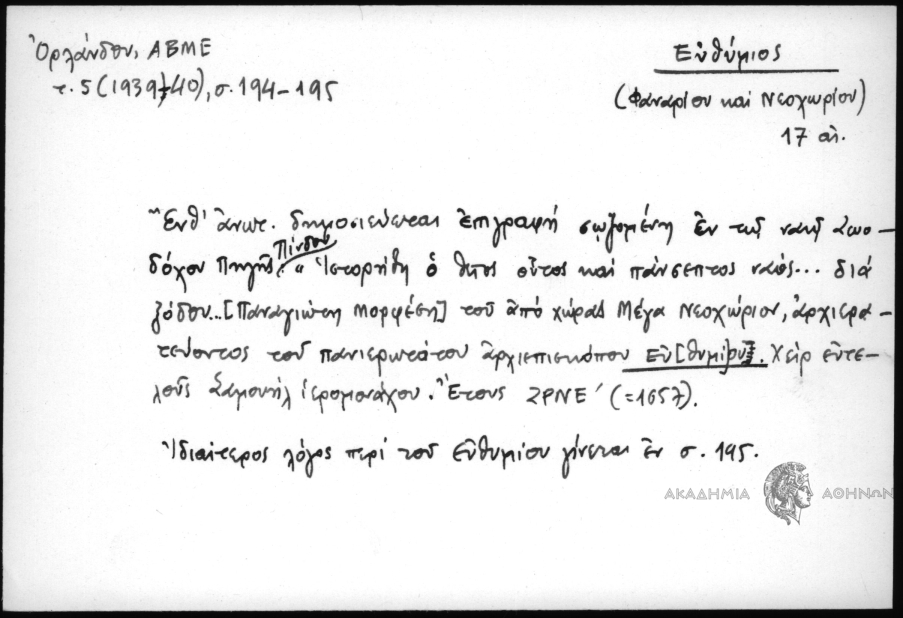 Ὀρλάνδου, ΑΒΜΕ
τ. 5 (1939/40), σ. 194-195
Εὐθύμιος
(Φαναρίου καὶ Νεοχωρίου)
17 αἰ.
Ἔνθ' ἄνωτ. δημοσιεύεται ἐπιγραφή σῳζομένη ἐν τῷ ναῷ Ζωο-
δόχου Πηγῆς Πίνδου. "Ἱστορήθη ὁ θεῖος οὗτος καὶ πάνσεπτος ναός... διά
ξόδου...[Παναγιώτη Μορφέση] τοῦ ἀπό χώρας Μέγα Νεοχώριον, ἀρχιερα-
τεύοντος τοῦ πανιερωτάτου ἀρχιεπισκόπου Εὐ[θυμί]ου. Χείρ εὐτε-
λοῦς Σαμουήλ ἱερομονάχου. Ἔτους ΖΡΝΕ´ (=1657).
Ἰδιαίτερος λόγος περί τοῦ Εὐθυμίου γίνεται ἐν σ. 195.
ΑΚΑΔΗΜΙΑ ΑΘΗΝΩΝ